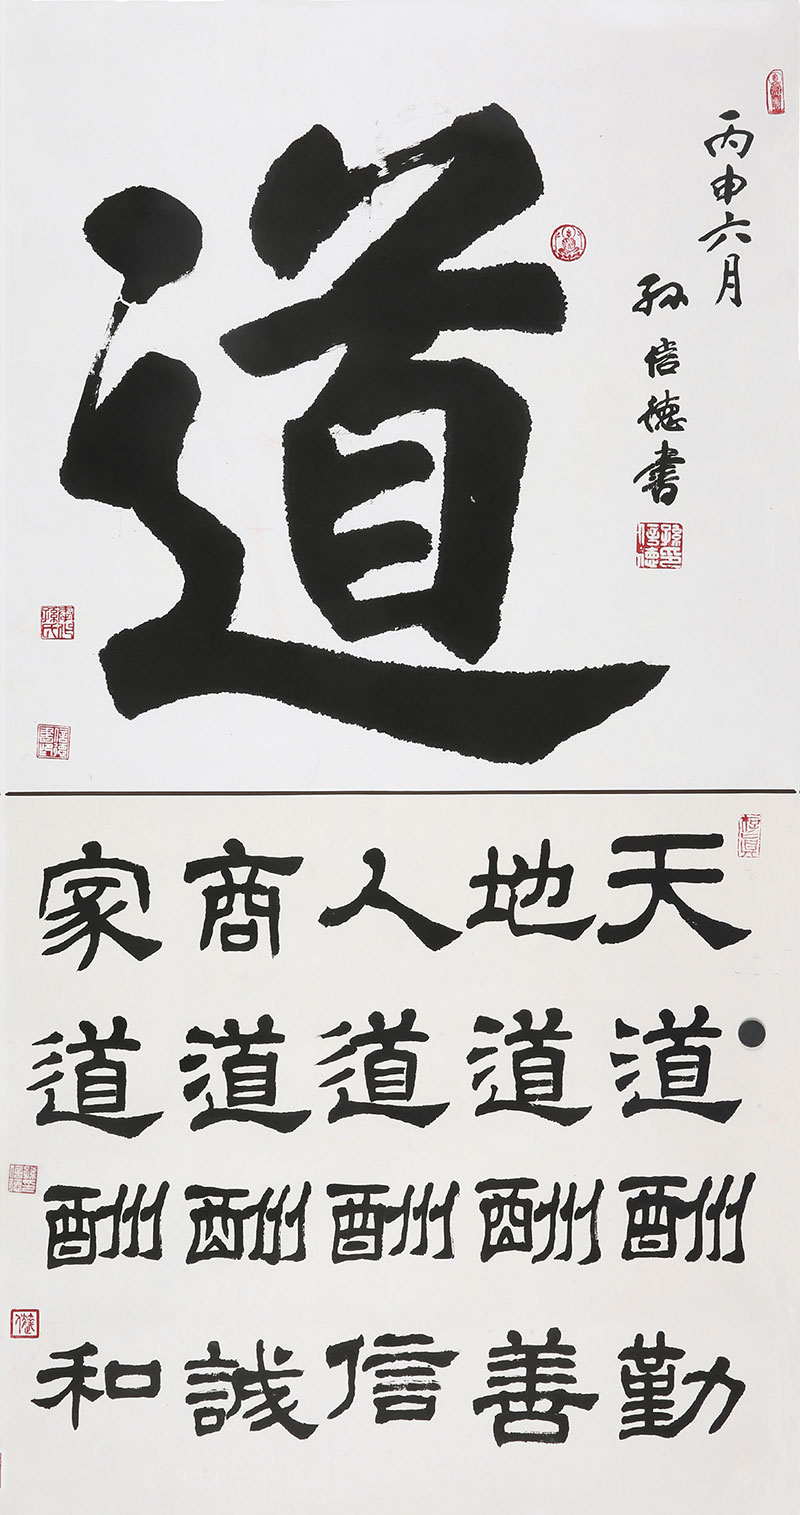 道
丙申六月
孙信德書
天道酬勤
地道酬善
人道酬信
商道酬誠
家道酬和